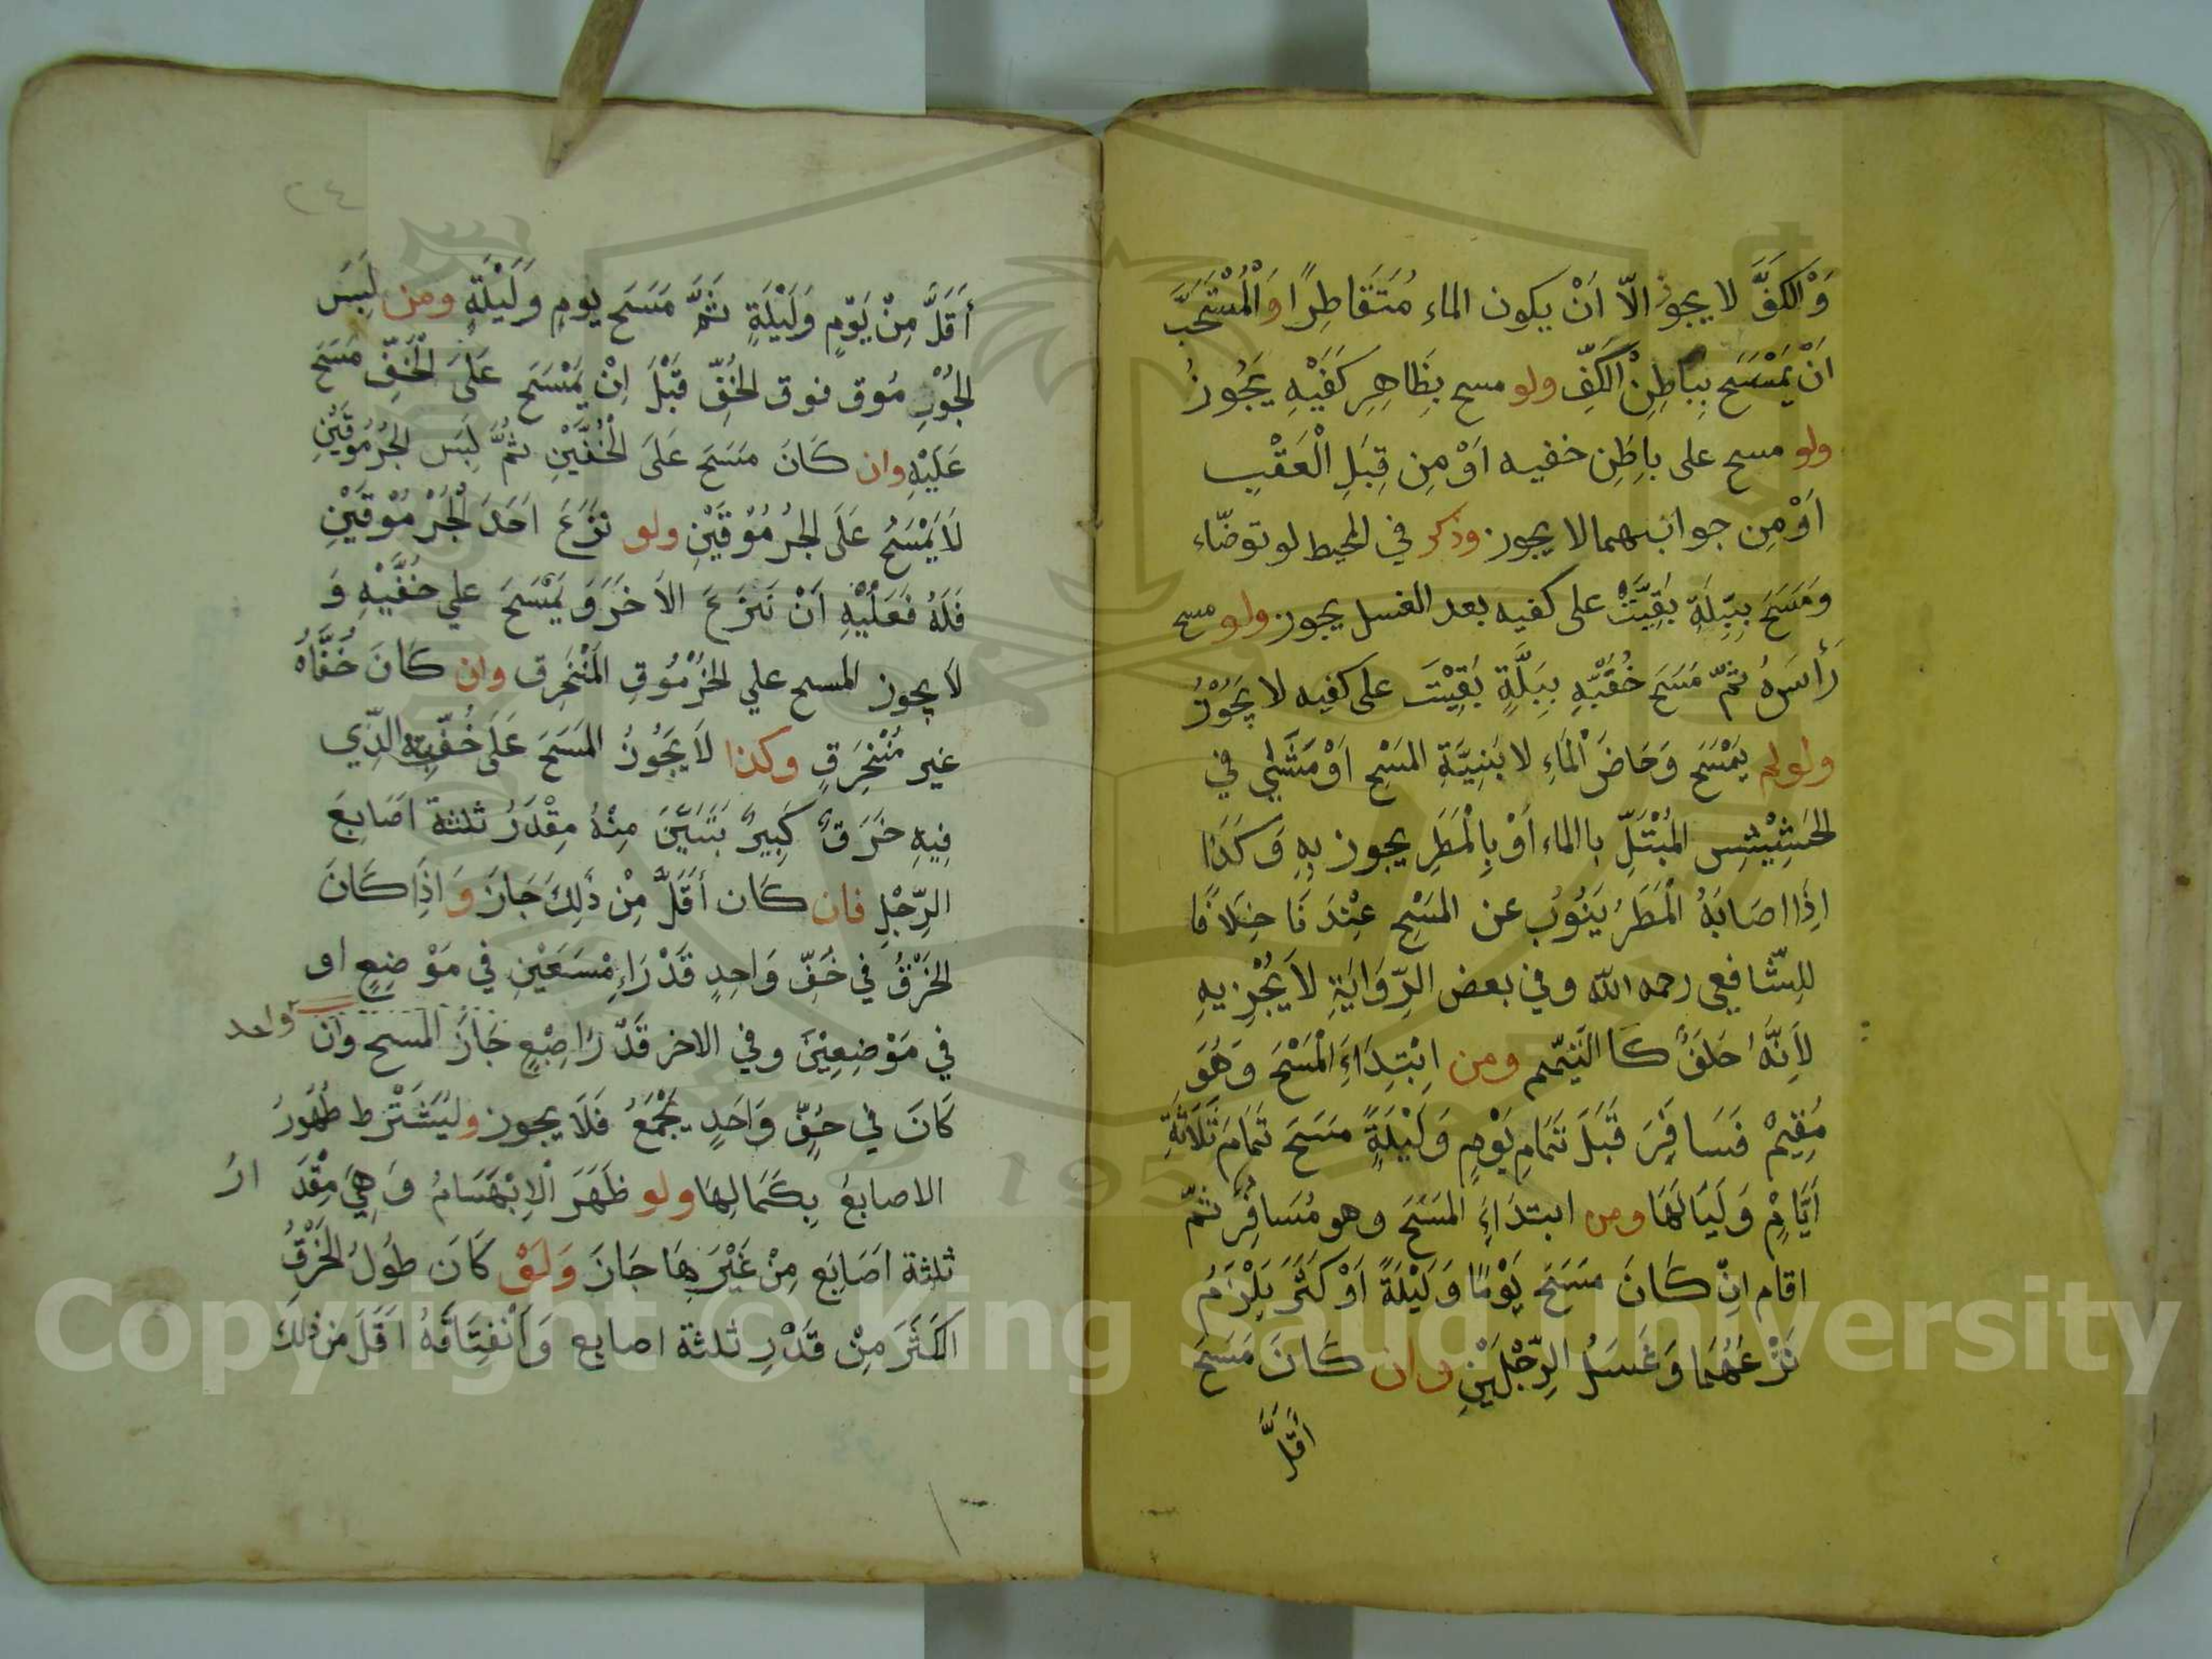 وَالْكَفَّ لا يجوز الّا اَنْ يكون الماء مُتَقَاطِرًا وَالْمُسْتَحَبّ
اَنْ يَمْسَحَ بِبَاطِنِ الْكَفِّ ولو مسح بِظَاهِرِ كَفَّيْهِ يَجُوزُ
ولو مسح على باطِنِ خفيه اَوْ مِن قِبَلِ الْعَقْبِ
اَوْ مِن جوانبهما لا يجوز وذكر في المحيط لو توضّاء
وَمَسَحَ بِبِلَّةِ بَقِيَتْ على كفيه بعد الغسل يجوز ولو مسح
رَأسَهُ ثمّ مَسَحَ خُفَّيْهِ بِبَلَّةٍ بَقِيْتَ على كفيه لا يَجُوْزُ
ولولم يَمْسَحَ وَخَاضَ الْمَاءِ لا بَنِيَّةِ المَسْحِ اَوْ مَشَي في
الحَشِيْشِ المُبْتَلِّ باالماء اَوْ بِالْمَطَرِ يجوز بِهِ وَكَذَا
اِذَا اصَابَهُ الْمَطَرُ يَنُوبُ عن المَسْحِ عِنْدَنَا خِلَافًا
للِشّافعي رحمه الله وفي بعض الرِّوَايَةِ لَا يُجْزِيهِ
لِأَنَّهُ خَلَفٌ كَاالتَّيَمّم ومن اِبْتِدَاءَ الْمَسْحَ وَهُوَ
مُقِيمٌ فَسَافَرَ قَبْلَ تَمَامِ يَوْمٍ وَلَيْلَةٍ مَسَحَ تَمَامَ ثَلَاثَةِ
اَيَّامٍ وَلَيَالَهَا ومن ابتدَاءَ المَسَحَ وهو مُسَافِرٌ ثمّ
اقام اِنْ كَانَ مَسَحَ يَوْمًا وَلَيْلَةً اَوْ كَثَرَ يَلْزَمُ
نَزْعَهُمَا وَغَسَلُ الرِّجْلَيْنِ وان كَانَ مَسَحَ
اَقَلَّ
٢٤
أَقَلَّ مِنْ يَوْمٍ وَلَيْلَةٍ ثمَّ مَسَحَ يومٍ وَلَيْلَةٍ ومن لَبِسَ
الجُرْمُوق فوق الخُفِّ قَبْلَ اِنْ يَمْسَحَ عَلَى الْخُفِّ مَسَحَ
عَلَيْهِ وان كَانَ مَسَحَ عَلَى الْخُفَّيْنِ ثمَّ لَبِسَ الجُرْمُوقَيْنِ
لَا يَمْسَحُ عَلَى الجُرْمُوْقَيْنِ ولو نَزَعَ اَحَدَ الْجُرْمُوْقَيْنِ
فَلَهُ فَعَلَيْهِ اَنْ نَنْزَعَ الاَخَرَ وَيَمْسَحَ علي خُفَّيْهِ وَ
لَا يجوز المسح علي الخُرْمُوقِ الْمُنْخَرِق وان كَانَ خُفَّاهُ
غير مُنْخَرِقٍ وكذا لَا يَجُوزُ المَسَحَ عَلَى خُفِّيِه الَّذِي
فِيهِ خَرَقٌ كَبِيرٌ يَتَبَيَّنَ مِنْهُ مِقْدَرُ ثلثة اَصَابِعَ
الرِّجْلِ فان كَان اَقَلَّ مِنْ ذَلِكَ جَازَ وَاذِا كَانَ
الخَرْقُ في خُفِّ وَاحِدٍ قَدْرَاءِ مْسَعَيْنِ في مَوْضِعٍ او
في مَوْضِعِيْنَ وفي الاخر قَدْرَا صِبْعٍ جَازَ المسح وان
واحد
كَانَ في خُفِّ وَاحَدٍ يَجْمَعُ فَلَا يجوز وليُشَتْرَط ظُهُورُ
الاصابعَ بِكَمَالِهَا ولو ظَهَرَ الْاِبْهَسَامُ وَهِيَ مِقْدَ ارُ
ثلثة اَصَابَع مِنْ غَيْرَهَا جَازَ وَلَوْ كَانَ طُولُ الخَرْقُ
اكثَرَ مِنْ قَدْرِ ثلثة اصابع وَاَنْفِتَاقَهُ اَقَلَ من ذلِكَ
Copyright © King Saud University
195